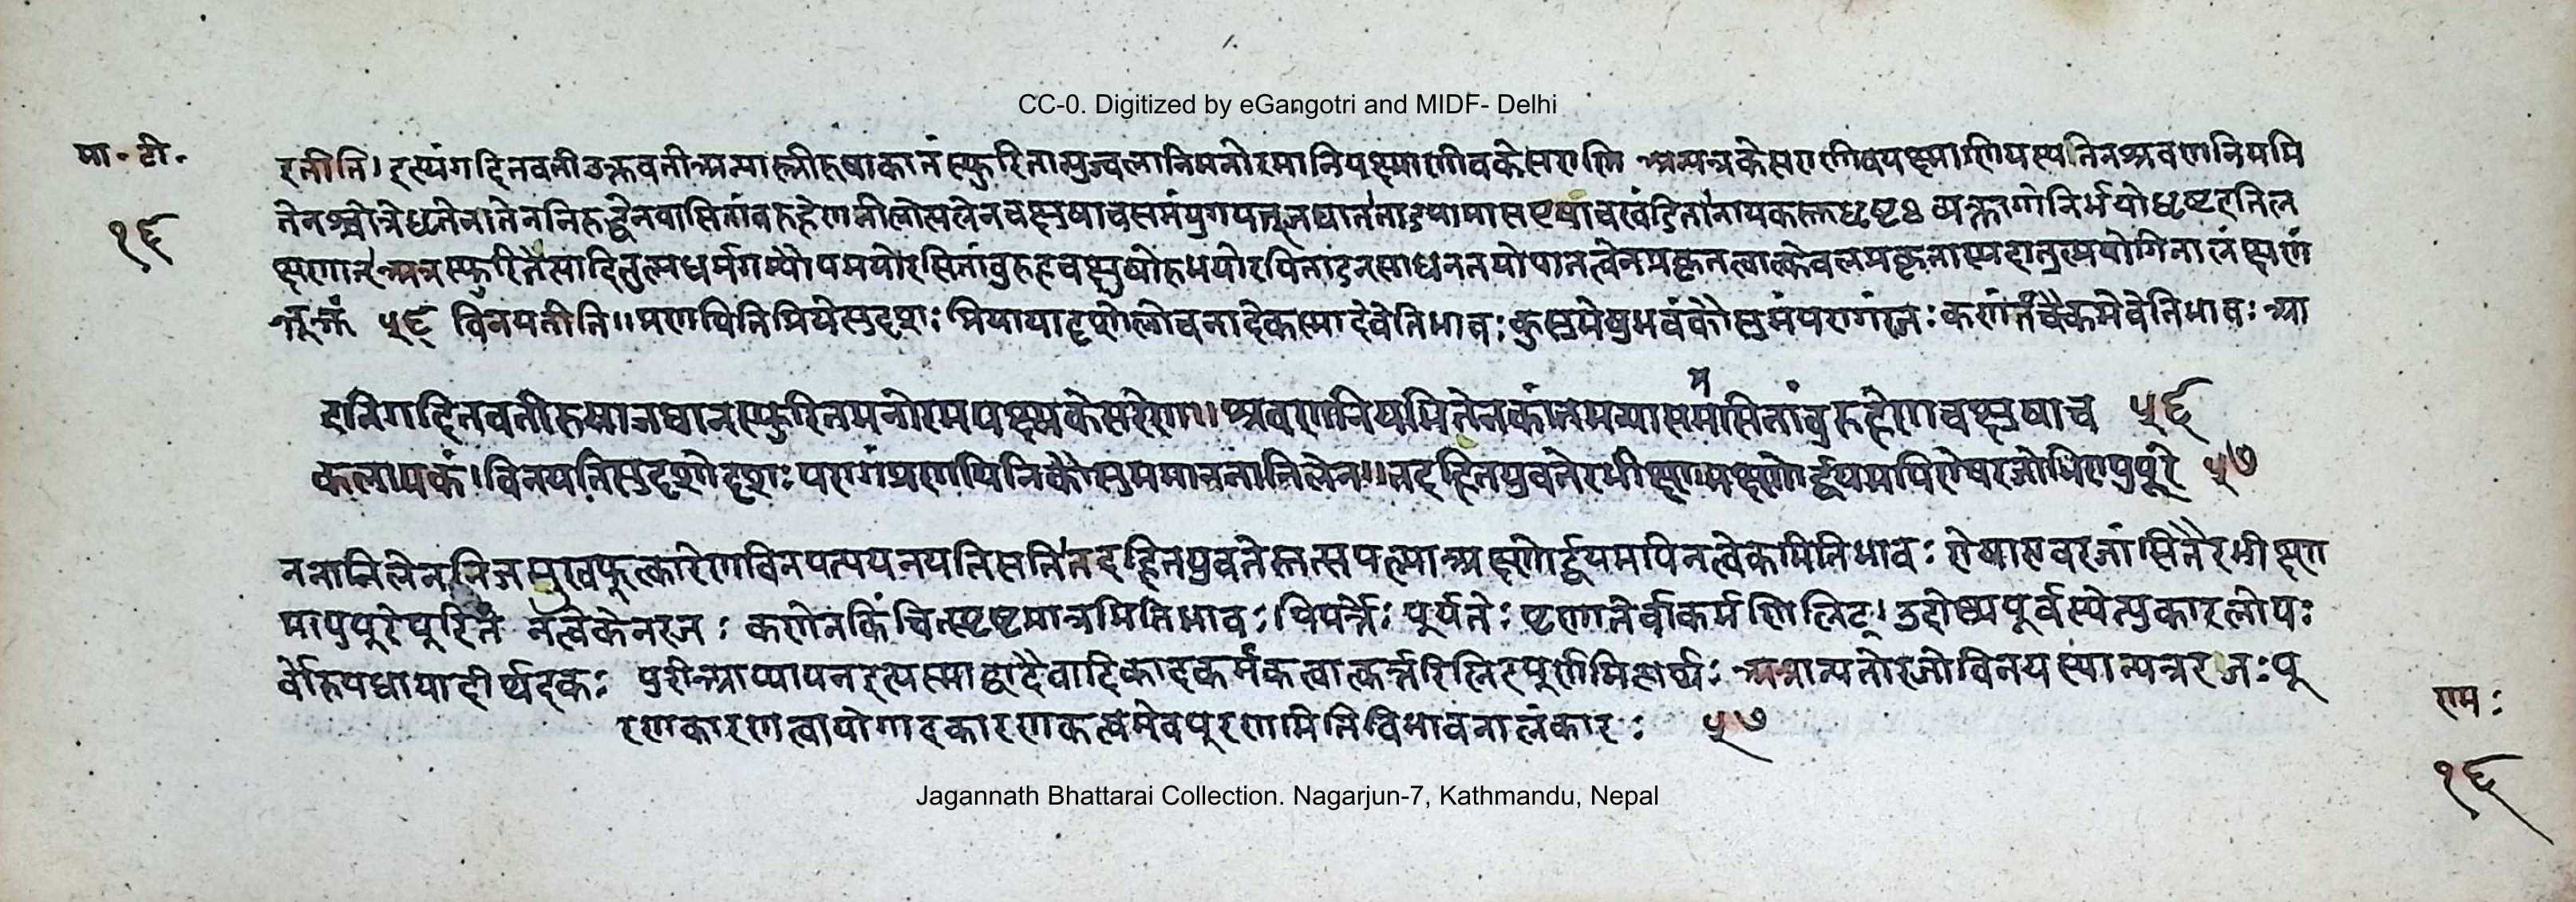 CC-0. Digitized by eGangotri and MIDF- Delhi
मा॰ टी॰
१६
इतीति। इत्थं गदितवती उक्तवती अन्या स्त्री रुषा कांतं स्फुरितान्युज्वलानि मनोरमानि पक्ष्माणीव केसराणि अन्यत्र केसराणीव पक्ष्माणि यस्य तेन श्रवणनियमि
तेन श्रोत्रे धृतेन निरुद्धेन वासितांबुरुहेण नीलोत्पलेन चक्षुषा च समं युगपज्जघान ताडयामास खंडिता नायकस्तु धृष्टः व्यक्तागो निर्भयो धृष्ट इति ल
क्षणात् अत्र स्फुरितेत्यादितुल्यधर्मगम्यौपम्ययोरसितांबुरुहचक्षुषोरुभयोरपि ताडनसाधनतयोपात्तत्वेन प्रकृतत्वात्केवलप्रकृतास्पदा तुल्ययोगिता लक्षणं
तूक्तं ५६ विनयतीति॥ प्रणयिनि प्रिये सुदृशः प्रियाया दृशो लोचनादेकस्मादेवेति भावः कुसुमेषु भवं कौसुमं परागं रजः कणं तं चैकमेवेति भावः आ
इति गदितवती रुषा जघान स्फुरितमनोरमपक्ष्मकेसरेण॥ श्रवणनियमितेन कांतमन्या सममसितांबुरुहेण चक्षुषा च ५६
कलापकं। विनयति सुदृशो दृशः परागं प्रणयिनि कौसुममाननानिलेन॥ तदहितयुवतेरभीक्ष्णमक्ष्णोर्द्वयमपि रोषरजोभिरापुपूरे ५७
ननानिलेन निजमुखफूत्कारेण विनयत्यपनयति सति तदहितयुवतेस्तत्सपत्न्या अक्ष्णोर्द्वयमपि न त्वेकमिति भावः रोषा एव रजांसि तैरभीक्ष्ण
मापुपूरे पूरितं नत्वेकेन रजः कणेन किंचित्स्पृष्टमात्रमिति भावः पिपर्तेः पूर्यतेः पृणातेर्वा कर्मणि लिट्। उदोष्ठ्यपूर्वस्येत्युकारलोपः
र्वोरुपधाया दीर्घ इकः पुरी आप्यायन इत्यस्माद्वा दैवादिकादकर्मकत्वात्कर्तरि लिट् पूर्णमित्यर्थः अत्रान्यतो रजोविनयस्यान्यत्र रजः पू
रणकारणत्वायोगादकारणकत्वमेव पूरणमिति विभावनालंकारः ५७
राम:
१६
Jagannath Bhattarai Collection. Nagarjun-7, Kathmandu, Nepal